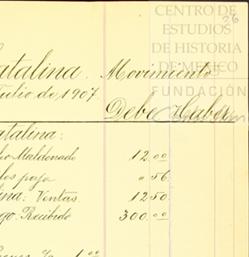 CENTRO DE
ESTUDIOS
DE HISTORIA
DE MÉXICO
FUNDACIÓN
26
atalina. Movimiento
Julio de 1907
Debe Haber
atalina:
Maldonado 12.00
pago " 56
ina: Ventas 12 50
go Recibido 300.00
1.00